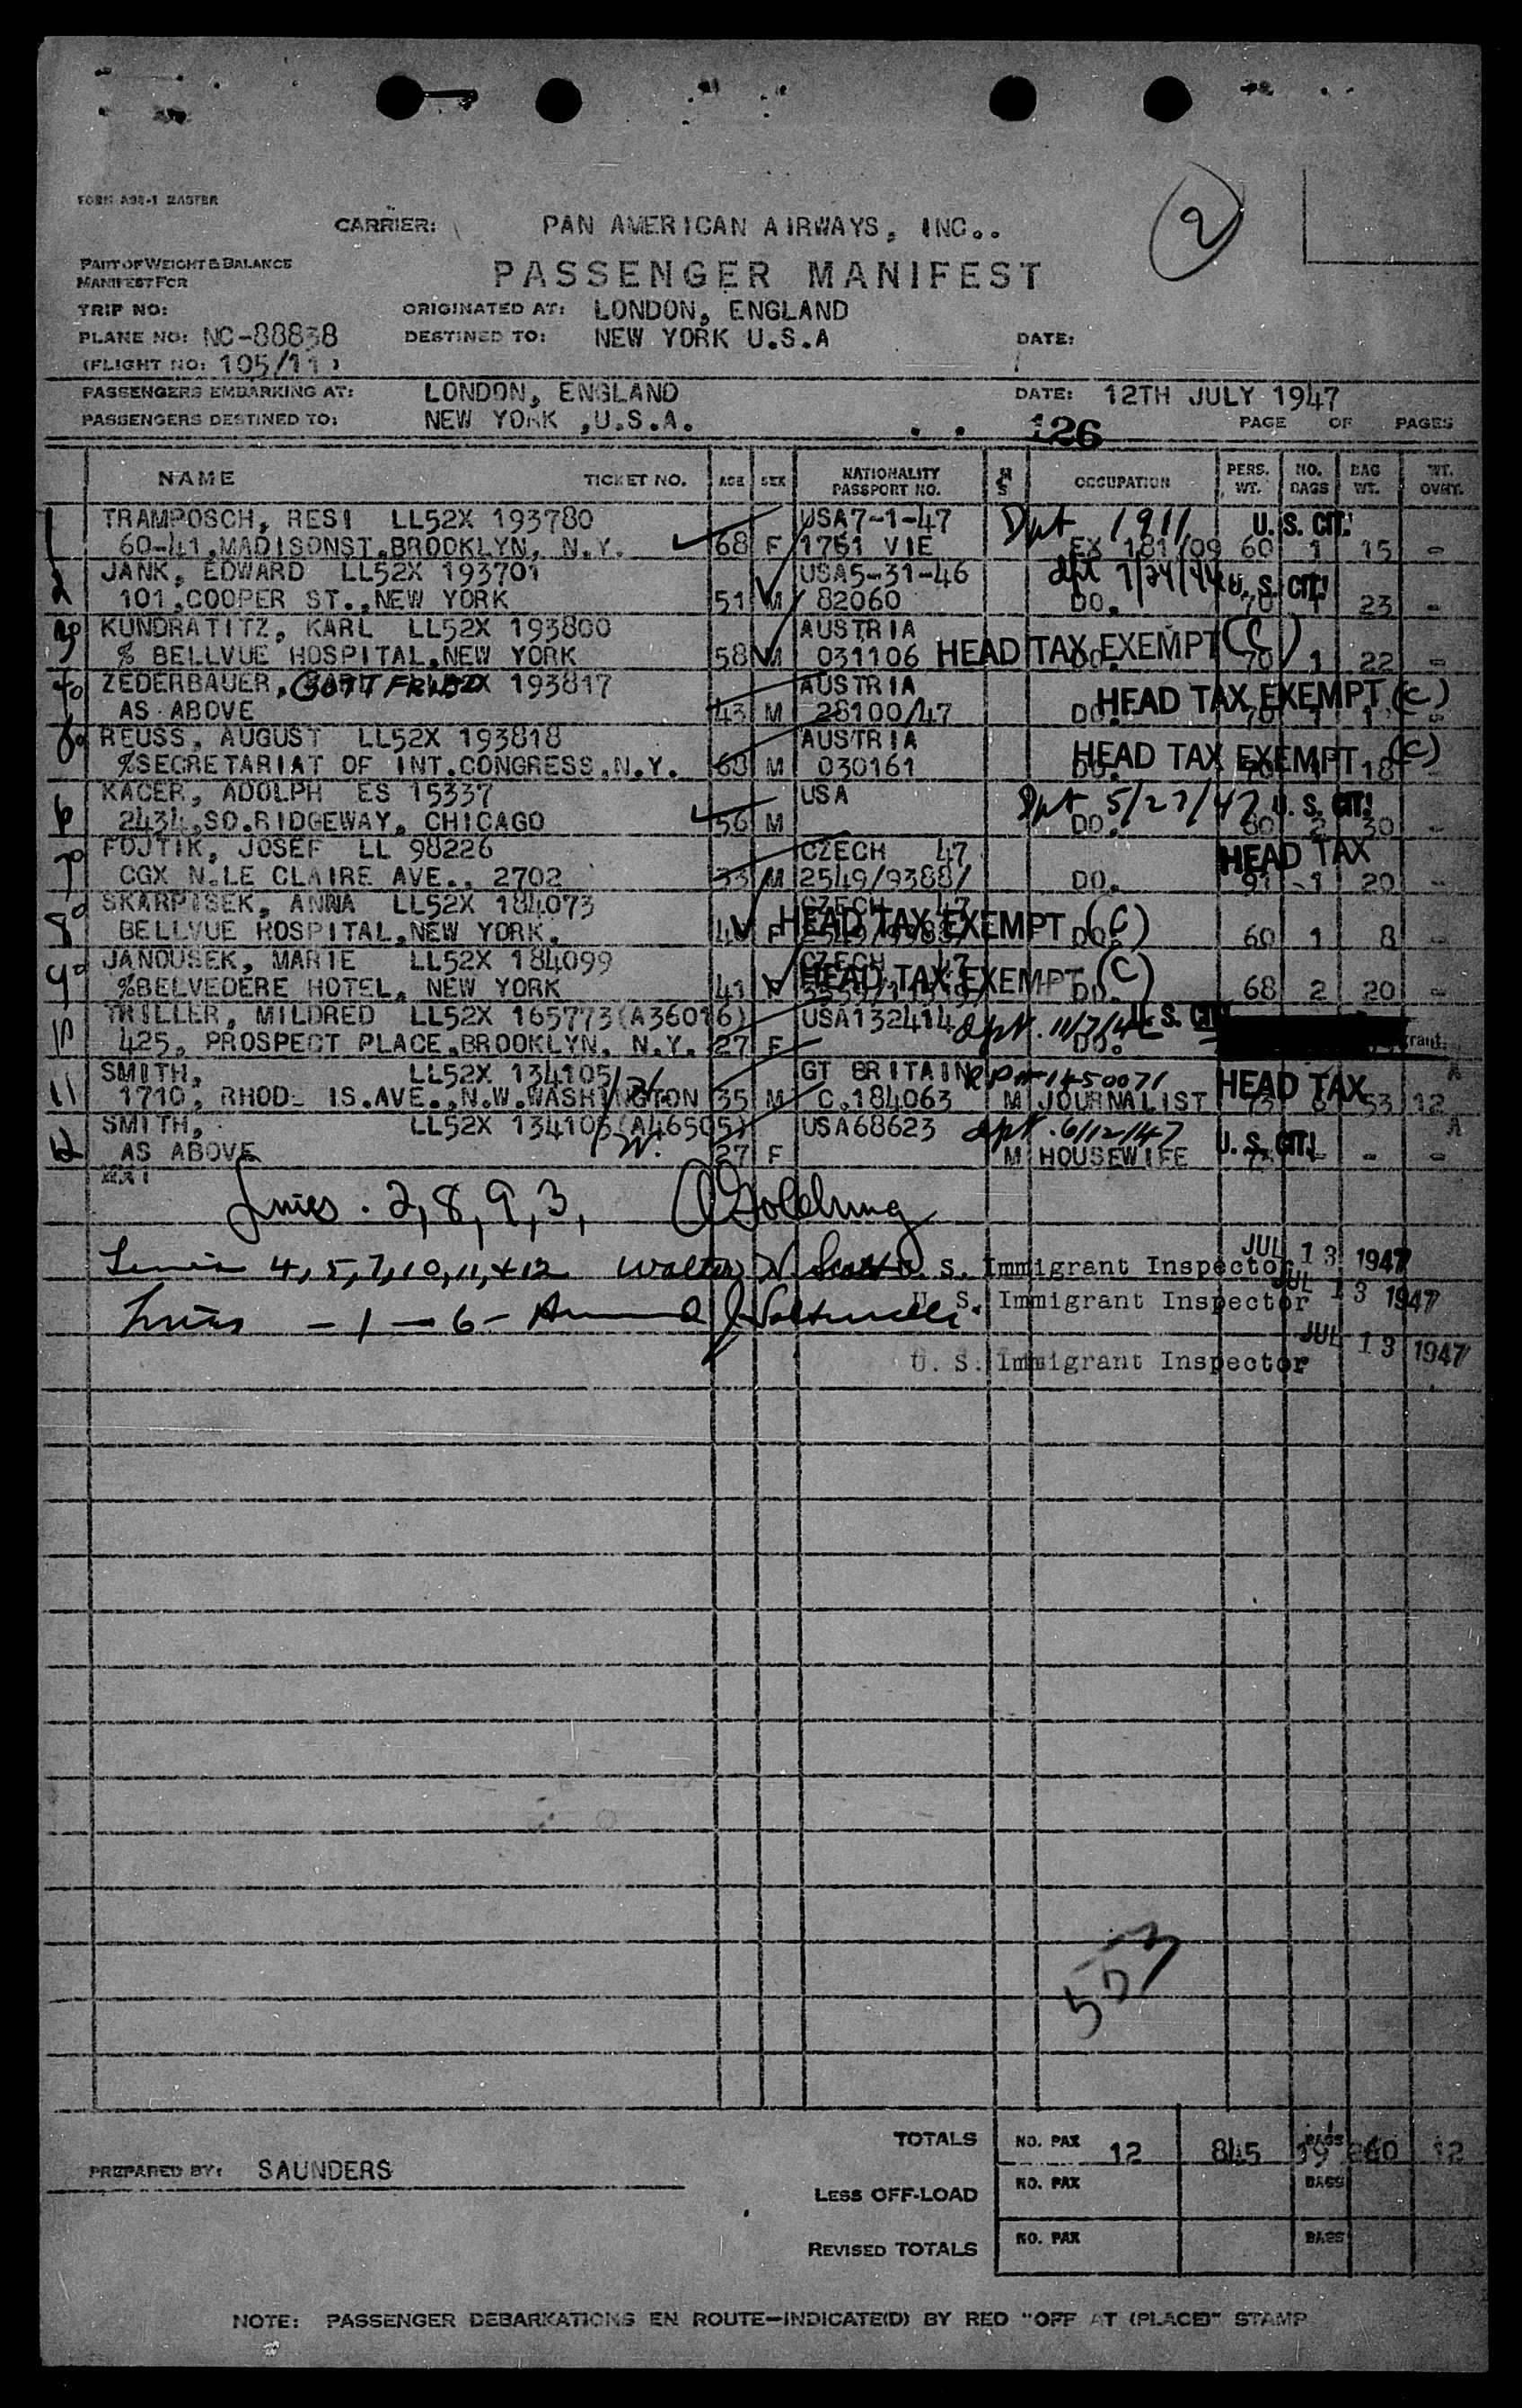 FORM A98-1 MASTER
2
CARRIER: PAN AMERICAN AIRWAYS, INC..
PART OF WEIGHT & BALANCE
MANIFEST FOR
PASSENGER MANIFEST
TRIP NO: ORIGINATED AT: LONDON, ENGLAND
PLANE NO: NC-88838 DESTINED TO: NEW YORK U.S.A DATE:
(FLIGHT NO: 105/11 )
PASSENGERS EMBARKING AT: LONDON, ENGLAND DATE: 12TH JULY 1947
PASSENGERS DESTINED TO: NEW YORK ,U.S.A. 126 PAGE OF PAGES
NAME TICKET NO. AGE SEX NATIONALITY PASSPORT NO. M S OCCUPATION PERS. WT. NO. BAGS BAG WT. WT. OVHT.
1 TRAMPOSCH, RESI LL52X 193780 USA7-1-47 Dpt 1911 U. S. CIT.
60-41,MADISONST.BROOKLYN, N.Y. 68 F 1751 VIE EX 181/09 60 1 15 -
2 JANK, EDWARD LL52X 193701 USA5-31-46 dpt U. S. CIT!
101,COOPER ST.,NEW YORK 51 M 82060 DO. 70 1 23 -
3 KUNDRATITZ, KARL LL52X 193800 AUSTRIA
% BELLVUE HOSPITAL,NEW YORK 58 M 031106 HEAD TAX EXEMPT (C) DO. 70 1 22 -
4 ZEDERBAUER, GOTTFRIED 193817 AUSTRIA
AS ABOVE 43 M 28100/47 DO. HEAD TAX EXEMPT (C)
REUSS, AUGUST LL52X 193818 AUSTRIA
%SECRETARIAT OF INT.CONGRESS,N.Y. 60 M 030161 DO. HEAD TAX EXEMPT (C) 18
6 KACER, ADOLPH ES 15337 USA Dpt 5/27/47 U. S. CIT!
2434,SO.RIDGEWAY, CHICAGO 56 M DO. 80 2 30 -
7 FOJTIK, JOSEF LL 98226 CZECH 47 HEAD TAX
CGX N.LE CLAIRE AVE., 2702 33 M 2549/9388/ DO. 91 1 20 -
8 SKARPISEK, ANNA LL52X 184073 CZECH 47
BELLVUE HOSPITAL,NEW YORK. F HEAD TAX EXEMPT (C) DO. 60 1 8 -
9 JANOUSEK, MARIE LL52X 184099 CZECH 47
%BELVEDERE HOTEL, NEW YORK 41 F HEAD TAX EXEMPT (C) DO. 68 2 20 -
10 TRILLER, MILDRED LL52X 165773(A36016) USA132414 dpt. U. S. CIT
425, PROSPECT PLACE,BROOKLYN, N.Y. 27 F DO.
11 SMITH, LL52X 134105 GT BRITAIN A
1710, RHOD. IS.AVE.,N.W.WASHINGTON 35 M C.184063 M JOURNALIST HEAD TAX 73 6 53 12
12 SMITH, LL52X 134106(A46505) USA68623 dpt. 6/12/47 A
AS ABOVE 27 F M HOUSEWIFE U. S. CIT! - - -
Lines . 2, 8, 9, 3, Goldring
JUL 13 1947
Lines 4, 5, 7, 10, 11, + 12 Walter N. Scott U. S. Immigrant Inspector
JUL 13 1947
Lines - 1 - 6 - U. S. Immigrant Inspector
JUL 13 1947
U. S. Immigrant Inspector
553
TOTALS NO. PAX 12 845 BAGS 19 260 12
PREPARED BY: SAUNDERS
LESS OFF-LOAD NO. PAX BAGS
REVISED TOTALS NO. PAX BAGS
NOTE: PASSENGER DEBARKATIONS EN ROUTE—INDICATE(D) BY RED "OFF AT (PLACE)" STAMP